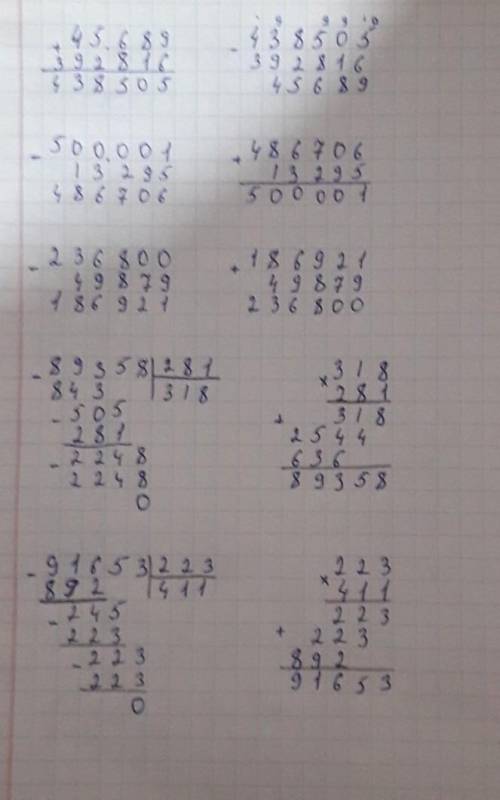 + 45.689
392816
438505
- 438505
392816
45689
- 500.001
13295
486706
+ 486706
13295
500001
- 236800
49879
186921
+ 186921
49879
236800
- 89358 281
843 318
- 505
281
- 2248
2248
0
× 318
281
318
+ 2544
636
89358
- 91653 223
892 411
- 245
223
- 223
223
0
× 223
411
223
+ 223
892
91653